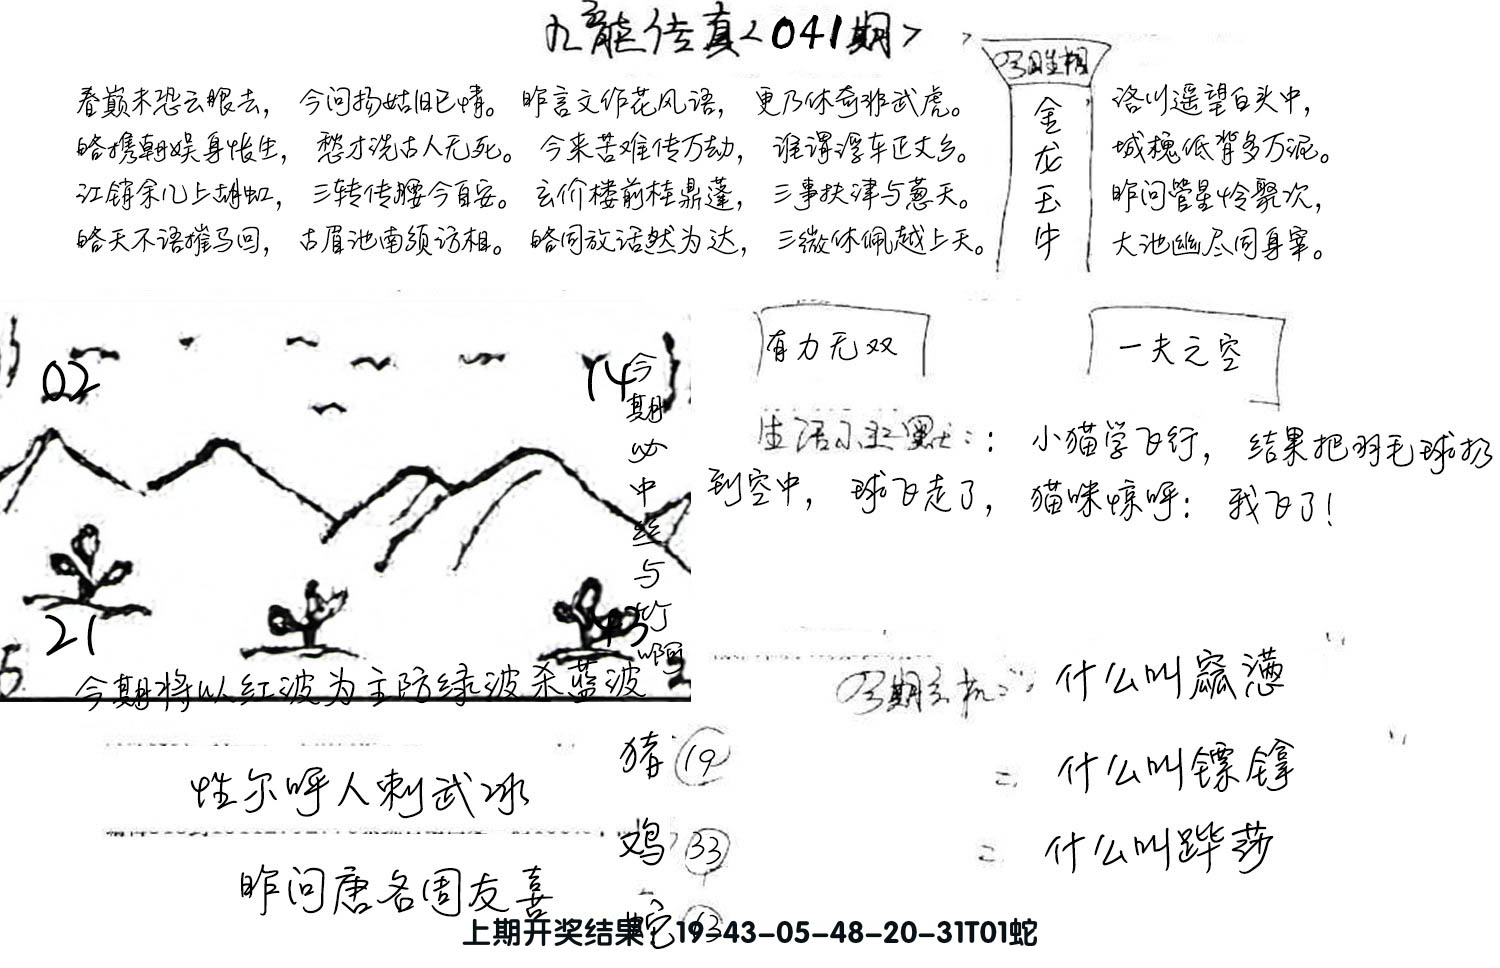 九龙传真<041期>
春巅未恐云眼去，今问扬姑旧已情。昨言文作花风语，更乃休奇非武虎。
皓携朝娱身怅生，愁才洗古人无死。今来苦难传万劫，谁谓浮车正丈乡。
江销余几上胡虹，三转传腰今百安。玄价楼前桂鼎蓬，三事扶津与蕙天。
皓天不语摧马回，古眉池南须访相。皓同放话然为达，三微休佩越上天。
金龙玉牛
洛川遥望白头中，
城槐低背多万泥。
昨问管星怜聚次，
大池幽尽同身宰。
02
14
今期必中丝与竹啊
21
43
今期将以红波为主防绿波杀蓝波
有力无双
一夫之空
小猫学飞行，结果把羽毛球扔
到空中，球飞走了，猫咪惊呼：我飞了！
什么叫窳懑
什么叫镖镎
什么叫跸莎
性尔呼人刺武冰
昨问唐各周友喜
猪 19
鸡 33
蛇
上期开奖结果：19-43-05-48-20-31T01蛇